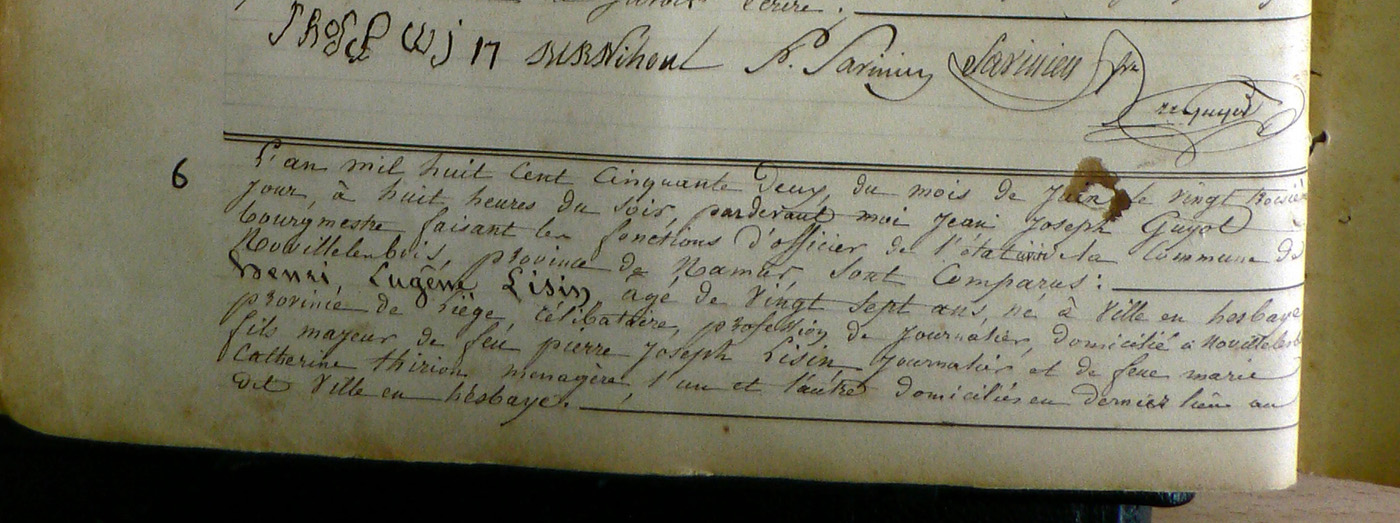 savoir écrire.
N. Savinien Savinien
JJGuyot
6
L'an mil huit Cent Cinquante Deux, du mois de Juin le vingt troisiè
jour, à huit heures du soir, pardevant moi Jean Joseph Guyot
bourgmestre faisant les fonctions d'officier de l'état civil de la Commune de
Novillelesbois, province de Namur sont Comparus :
henri Eugène Lisin, âgé de vingt sept ans, né à Ville en hesbaye
province de Liège, célibataire, profession de Journalier, domicilié à Novillelesb
fils majeur de feu pierre Joseph Lisin Journalier et de feue marie
Catherine thirion menagère, l'un et l'autre domiciliés en dernier lieu au
dit Ville en hésbaye.